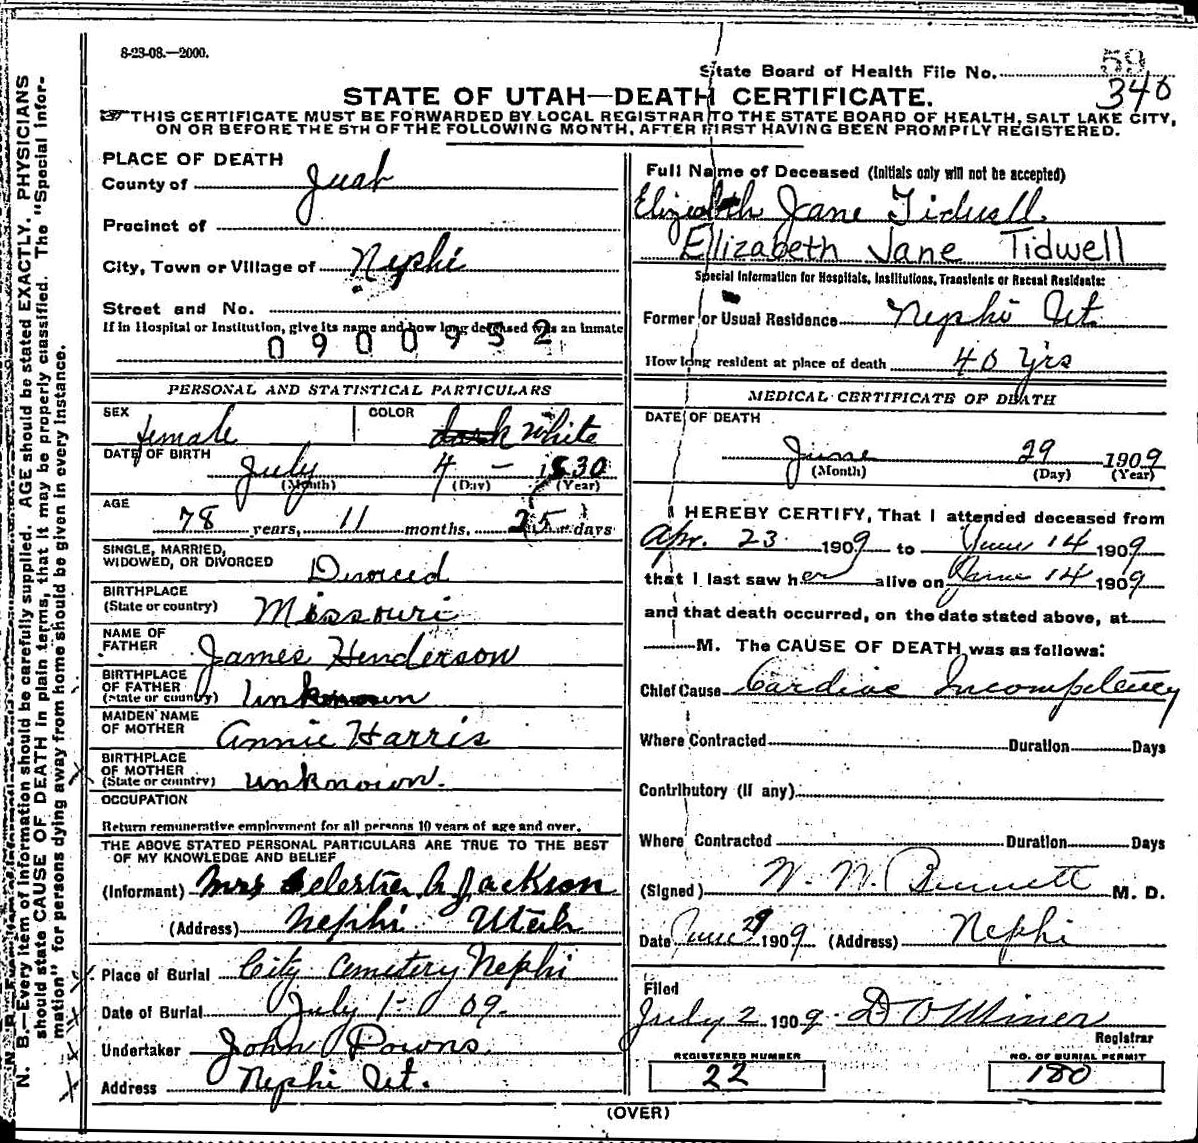 8-23-08.—2000.
State Board of Health File No. 59
340
STATE OF UTAH—DEATH CERTIFICATE.
THIS CERTIFICATE MUST BE FORWARDED BY LOCAL REGISTRAR TO THE STATE BOARD OF HEALTH, SALT LAKE CITY,
ON OR BEFORE THE 5TH OF THE FOLLOWING MONTH, AFTER FIRST HAVING BEEN PROMPILY REGISTERED.
PLACE OF DEATH
County of Juab
Precinct of
City, Town or Village of Nephi
Street and No.
If in Hospital or Institution, give its name and how long deceased was an inmate
0900952
PERSONAL AND STATISTICAL PARTICULARS
SEX
female
COLOR
dark White
DATE OF BIRTH
July 4 - 1830
(Month) (Day) (Year)
AGE
78 years, 11 months, 25 days
SINGLE, MARRIED,
WIDOWED, OR DIVORCED Divorced
BIRTHPLACE
(State or country) Missouri
NAME OF
FATHER James Henderson
BIRTHPLACE
OF FATHER
(State or country) Unknown
MAIDEN NAME
OF MOTHER Annie Harris
BIRTHPLACE
OF MOTHER
(State or country) unknown.
OCCUPATION
Return remunerative employment for all persons 10 years of age and over.
THE ABOVE STATED PERSONAL PARTICULARS ARE TRUE TO THE BEST
OF MY KNOWLEDGE AND BELIEF
(Informant) Mrs Jackson
(Address) Nephi Utah
Place of Burial City Cemetery Nephi
Date of Burial July 1- 09.
Undertaker John Powns.
Address Nephi Ut.
Full Name of Deceased (Initials only will not be accepted)
Elizabeth Jane Tidwell.
Elizabeth Jane Tidwell
Special Information for Hospitals, Institutions, Transients or Recent Residents:
Former or Usual Residence Nephi Ut.
How long resident at place of death 40 yrs
MEDICAL CERTIFICATE OF DEATH
DATE OF DEATH
June 29 1909
(Month) (Day) (Year)
I HEREBY CERTIFY, That I attended deceased from
Apr. 23 1909 to June 14 1909
that I last saw her alive on June 14 1909
and that death occurred, on the date stated above, at
M. The CAUSE OF DEATH was as follows:
Chief Cause Cardiac Incompetency
Where Contracted Duration Days
Contributory (If any)
Where Contracted Duration Days
(Signed) M. D.
Date June 29 1909 (Address) Nephi
Filed
July 2 1909. D O Miner
Registrar
REGISTERED NUMBER
22
NO. OF BURIAL PERMIT
180
(OVER)
N. B.—Every item of information should be carefully supplied. AGE should be stated EXACTLY. PHYSICIANS
should state CAUSE OF DEATH in plain terms, that it may be properly classified. The "Special Infor-
mation" for persons dying away from home should be given in every instance.